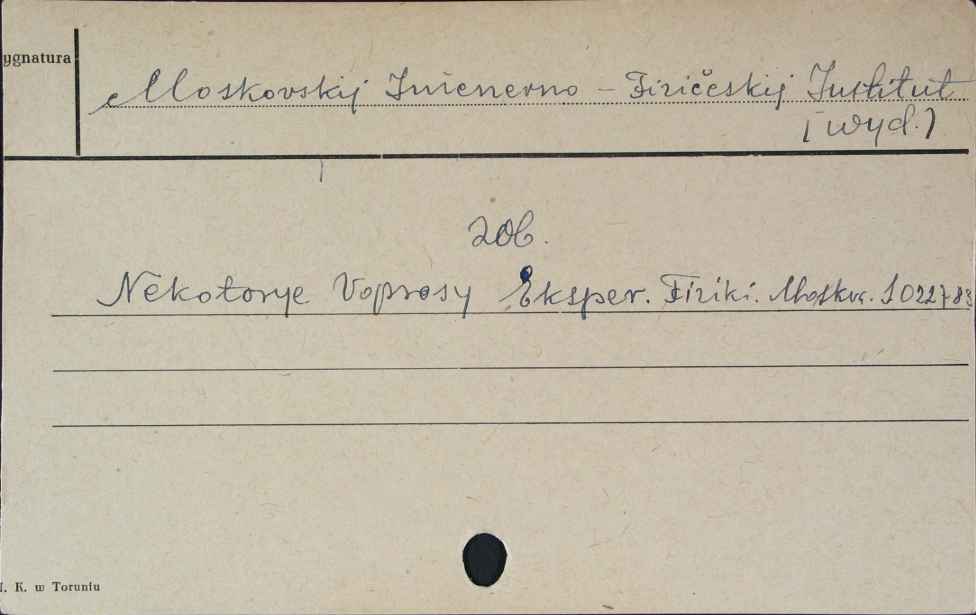 ygnatura
Moskovskij Inženerno - Fizičeskij Institut
[wyd.]
zob.
Nekotorye Voprosy Eksper. Fiziki. Moskva. 1022788
I. K. w Toruniu